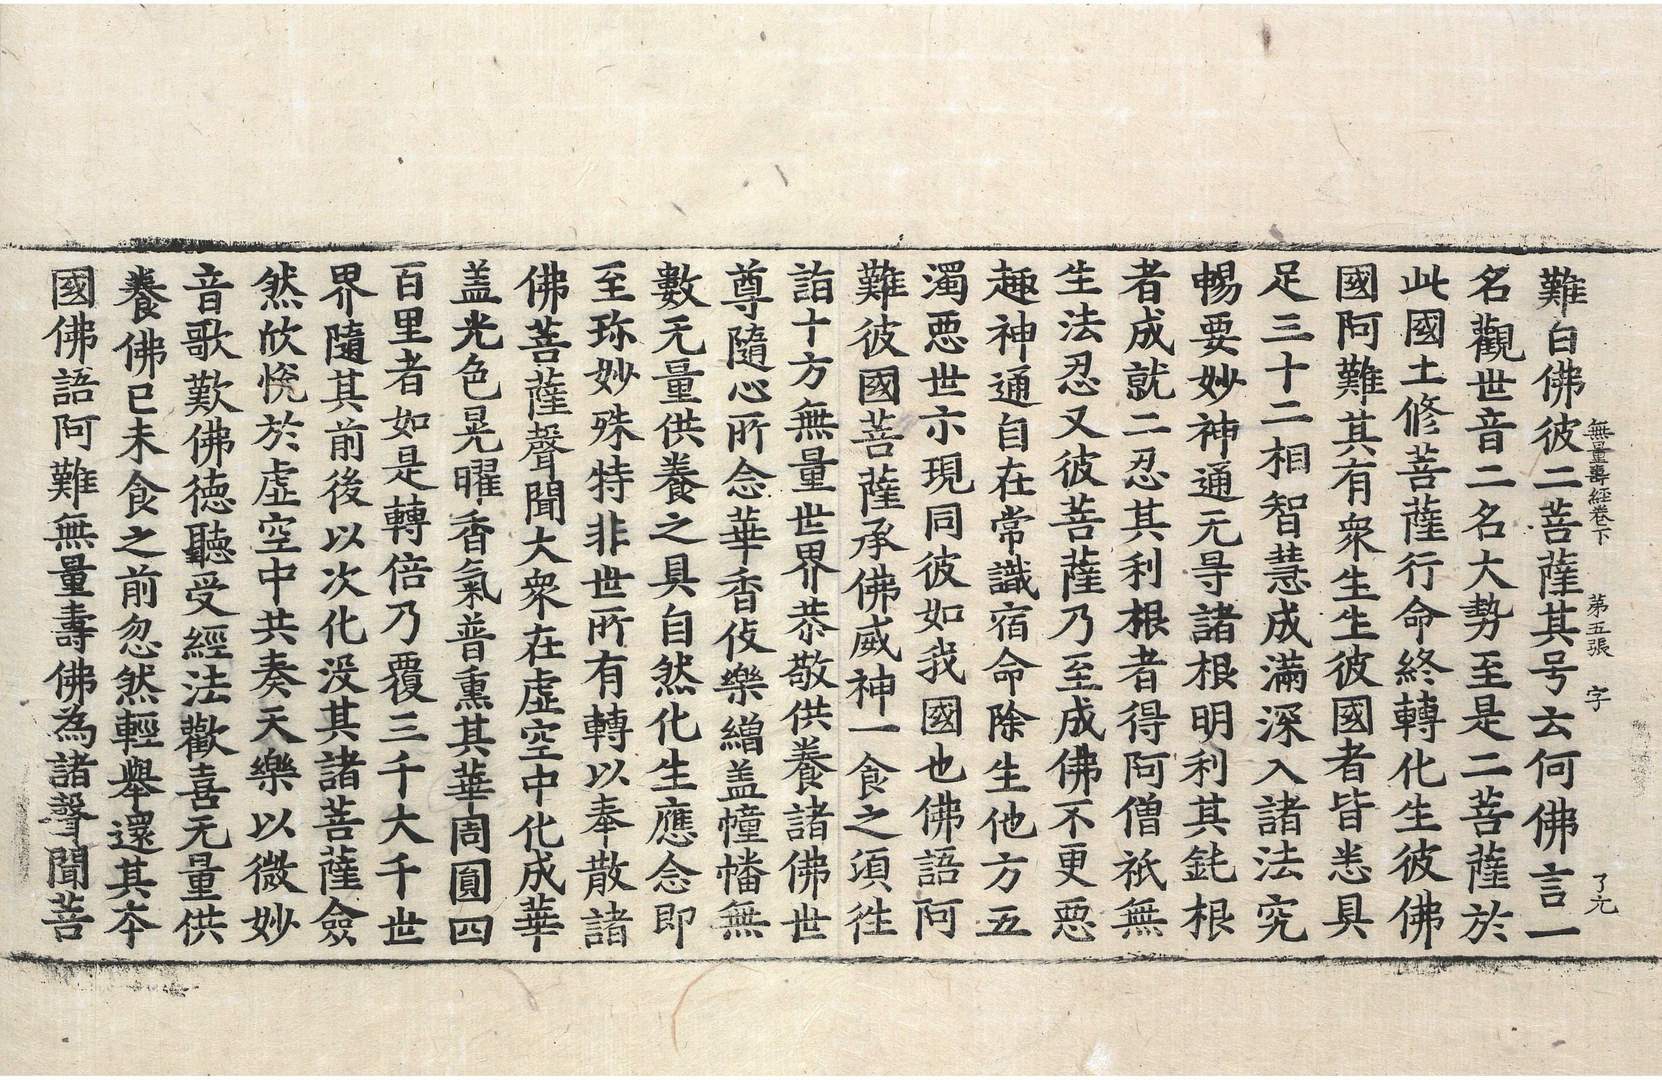 無量壽經卷下　第五張　字　了元
難白佛彼二菩薩其号云何佛言一
名觀世音二名大勢至是二菩薩於
此國土修菩薩行命終轉化生彼佛
國阿難其有衆生生彼國者皆悉具
足三十二相智慧成滿深入諸法究
暢要妙神通无㝵諸根明利其鈍根
者成就二忍其利根者得阿僧祇無
生法忍又彼菩薩乃至成佛不更惡
趣神通自在常識宿命除生他方五
濁惡世示現同彼如我國也佛語阿
難彼國菩薩承佛威神一食之須徃
詣十方無量世界恭敬供養諸佛世
尊隨心所念華香伎樂繒盖幢幡無
數无量供養之具自然化生應念即
至珎妙殊特非世所有轉以奉散諸
佛菩薩聲聞大衆在虛空中化成華
盖光色晃曜香氣普熏其華周圓四
百里者如是轉倍乃覆三千大千世
界隨其前後以次化没其諸菩薩僉
然欣悅於虛空中共奏天樂以微妙
音歌歎佛德聽受經法歡喜无量供
養佛已未食之前忽然輕舉還其本
國佛語阿難無量壽佛為諸聲聞菩